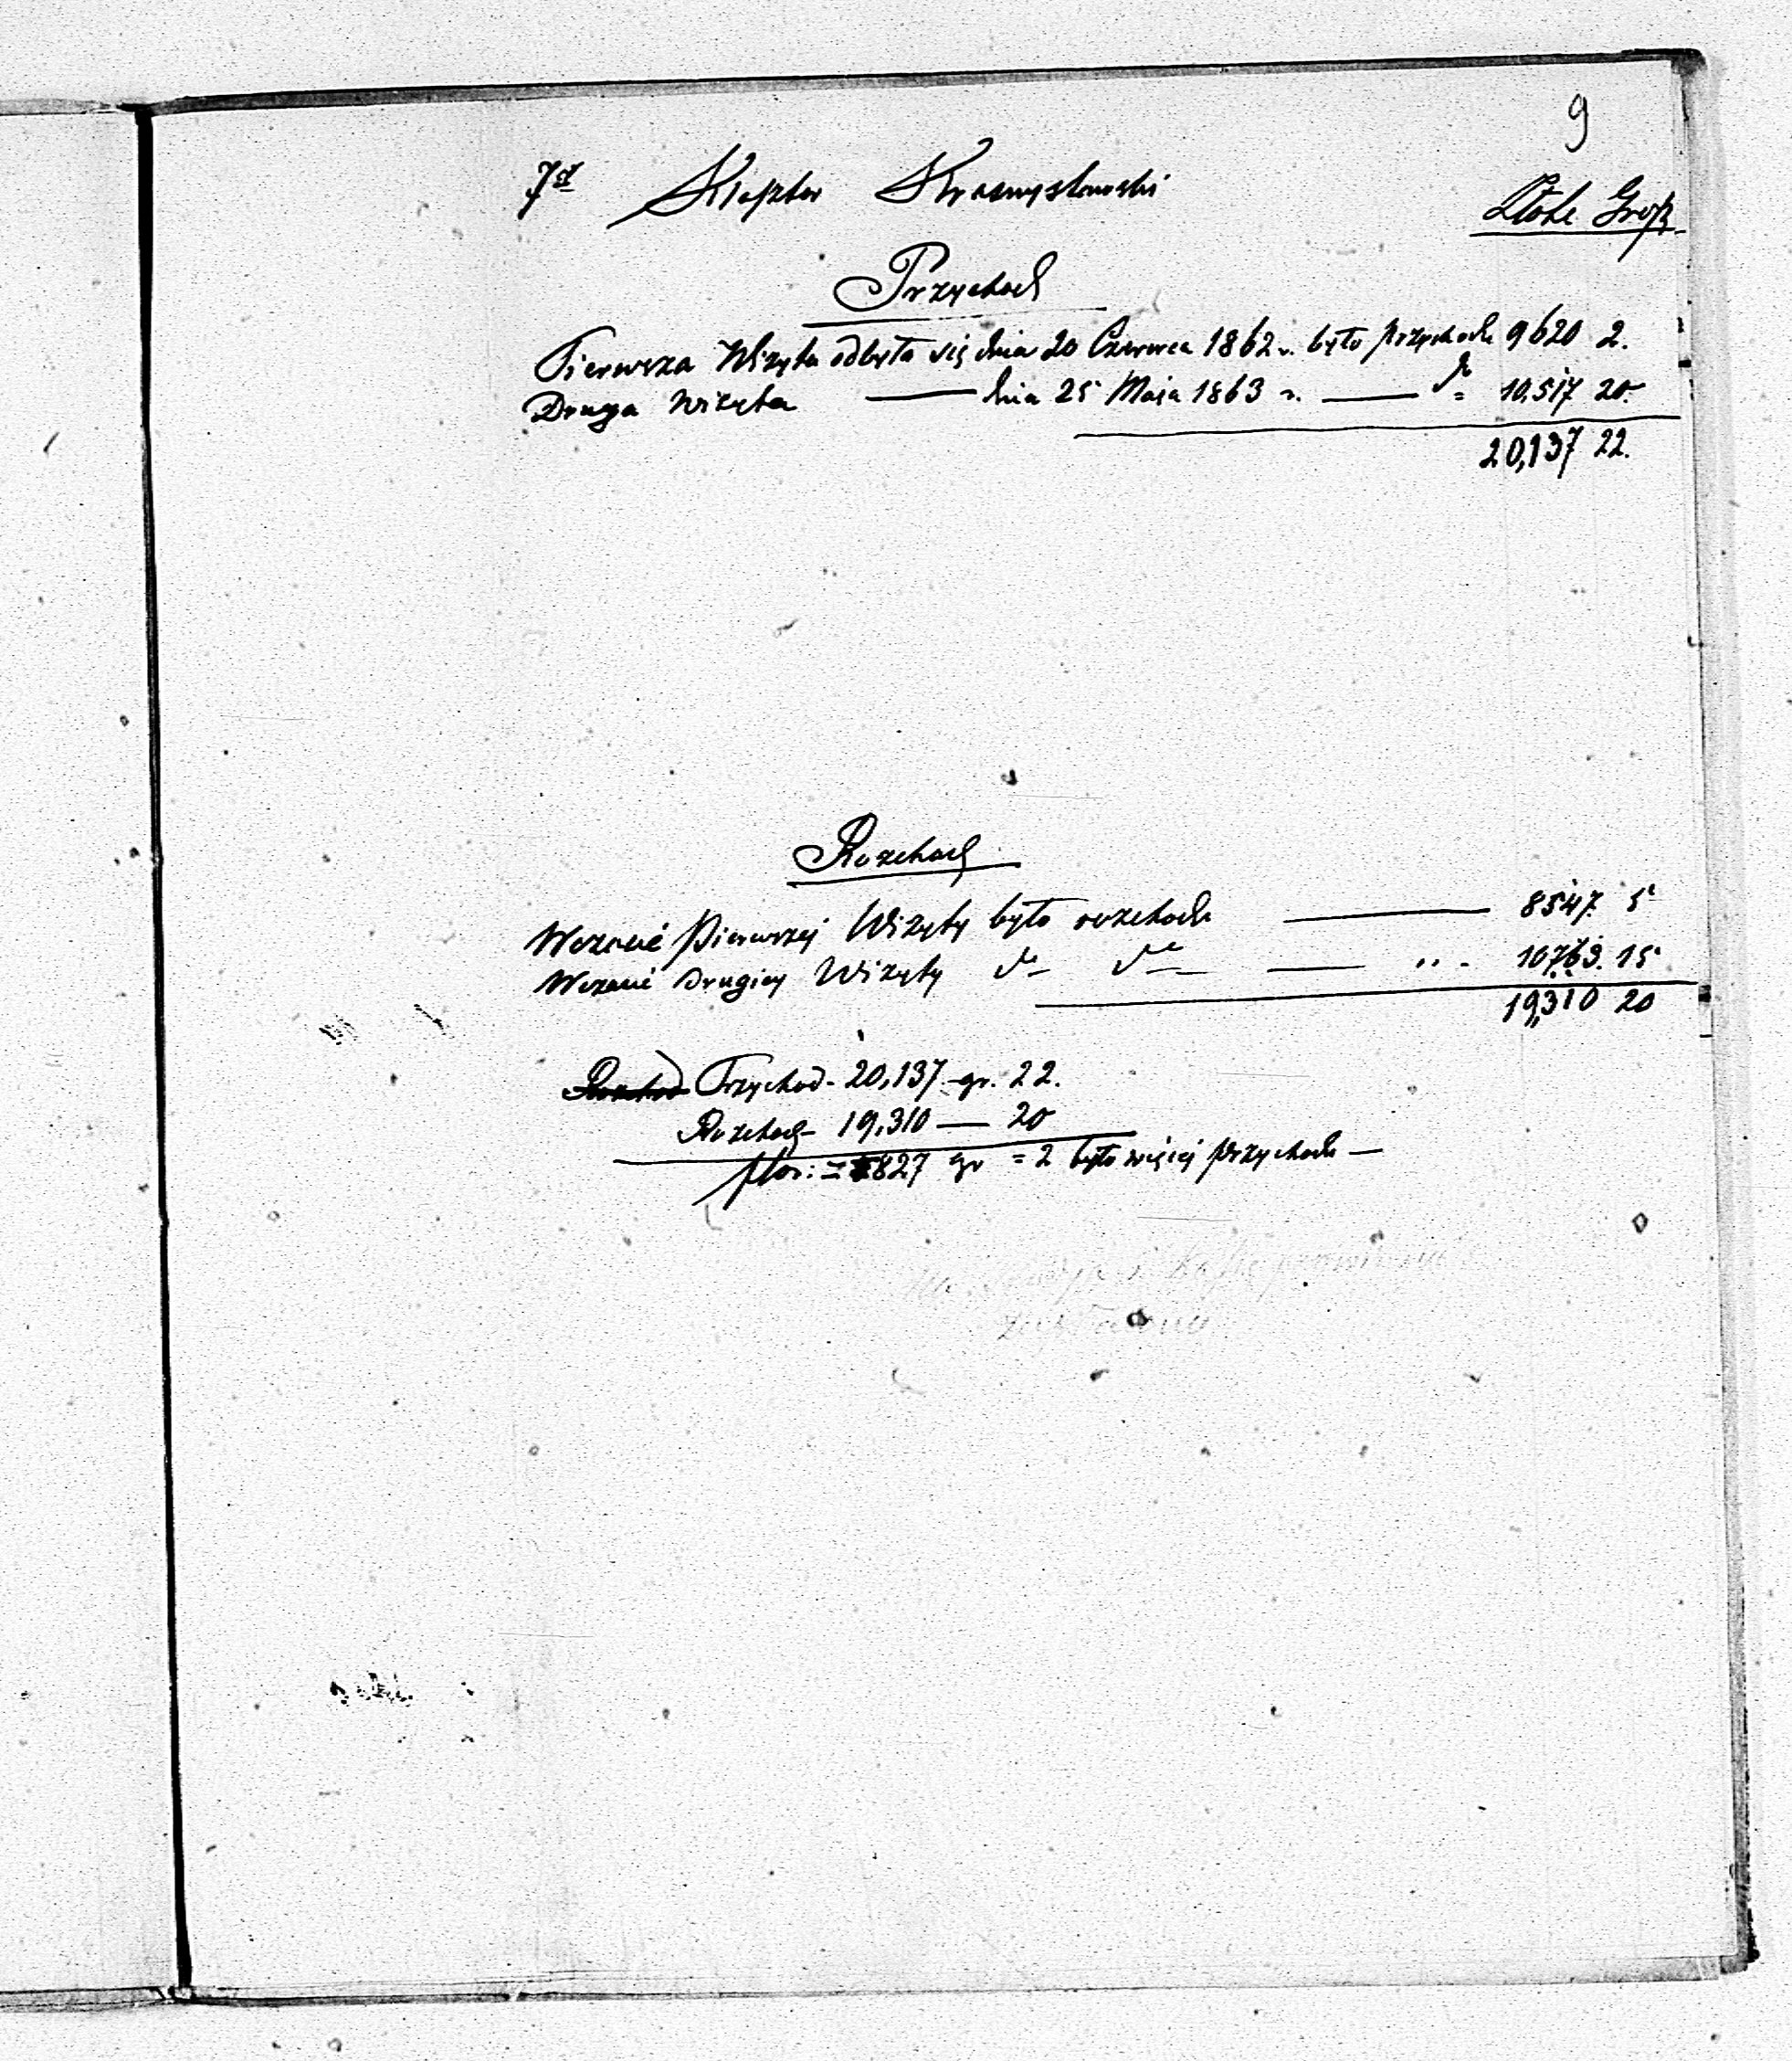 9
7º Klasztor Krasnystawski
Złote Grosz
Przychod
Pierwsza Wizyta odbyła się dnia 20 Czerwca 1862 r. było przychodu 9620 2.
Druga Wizyta — dnia 25 Maja 1863 r. — do = 10,517 20.
20,137 22.
Rozchod
W czasie Pierwszej Wizyty było rozchodu — 8547. 5
W czasie Drugiey Wizyty do do — 10763. 15
19,310 20
Rozchod Przychod - 20,137 - gr. 22.
Rozchod - 19,310 — 20
flor: = 827 gr = 2 było więcej przychodu —